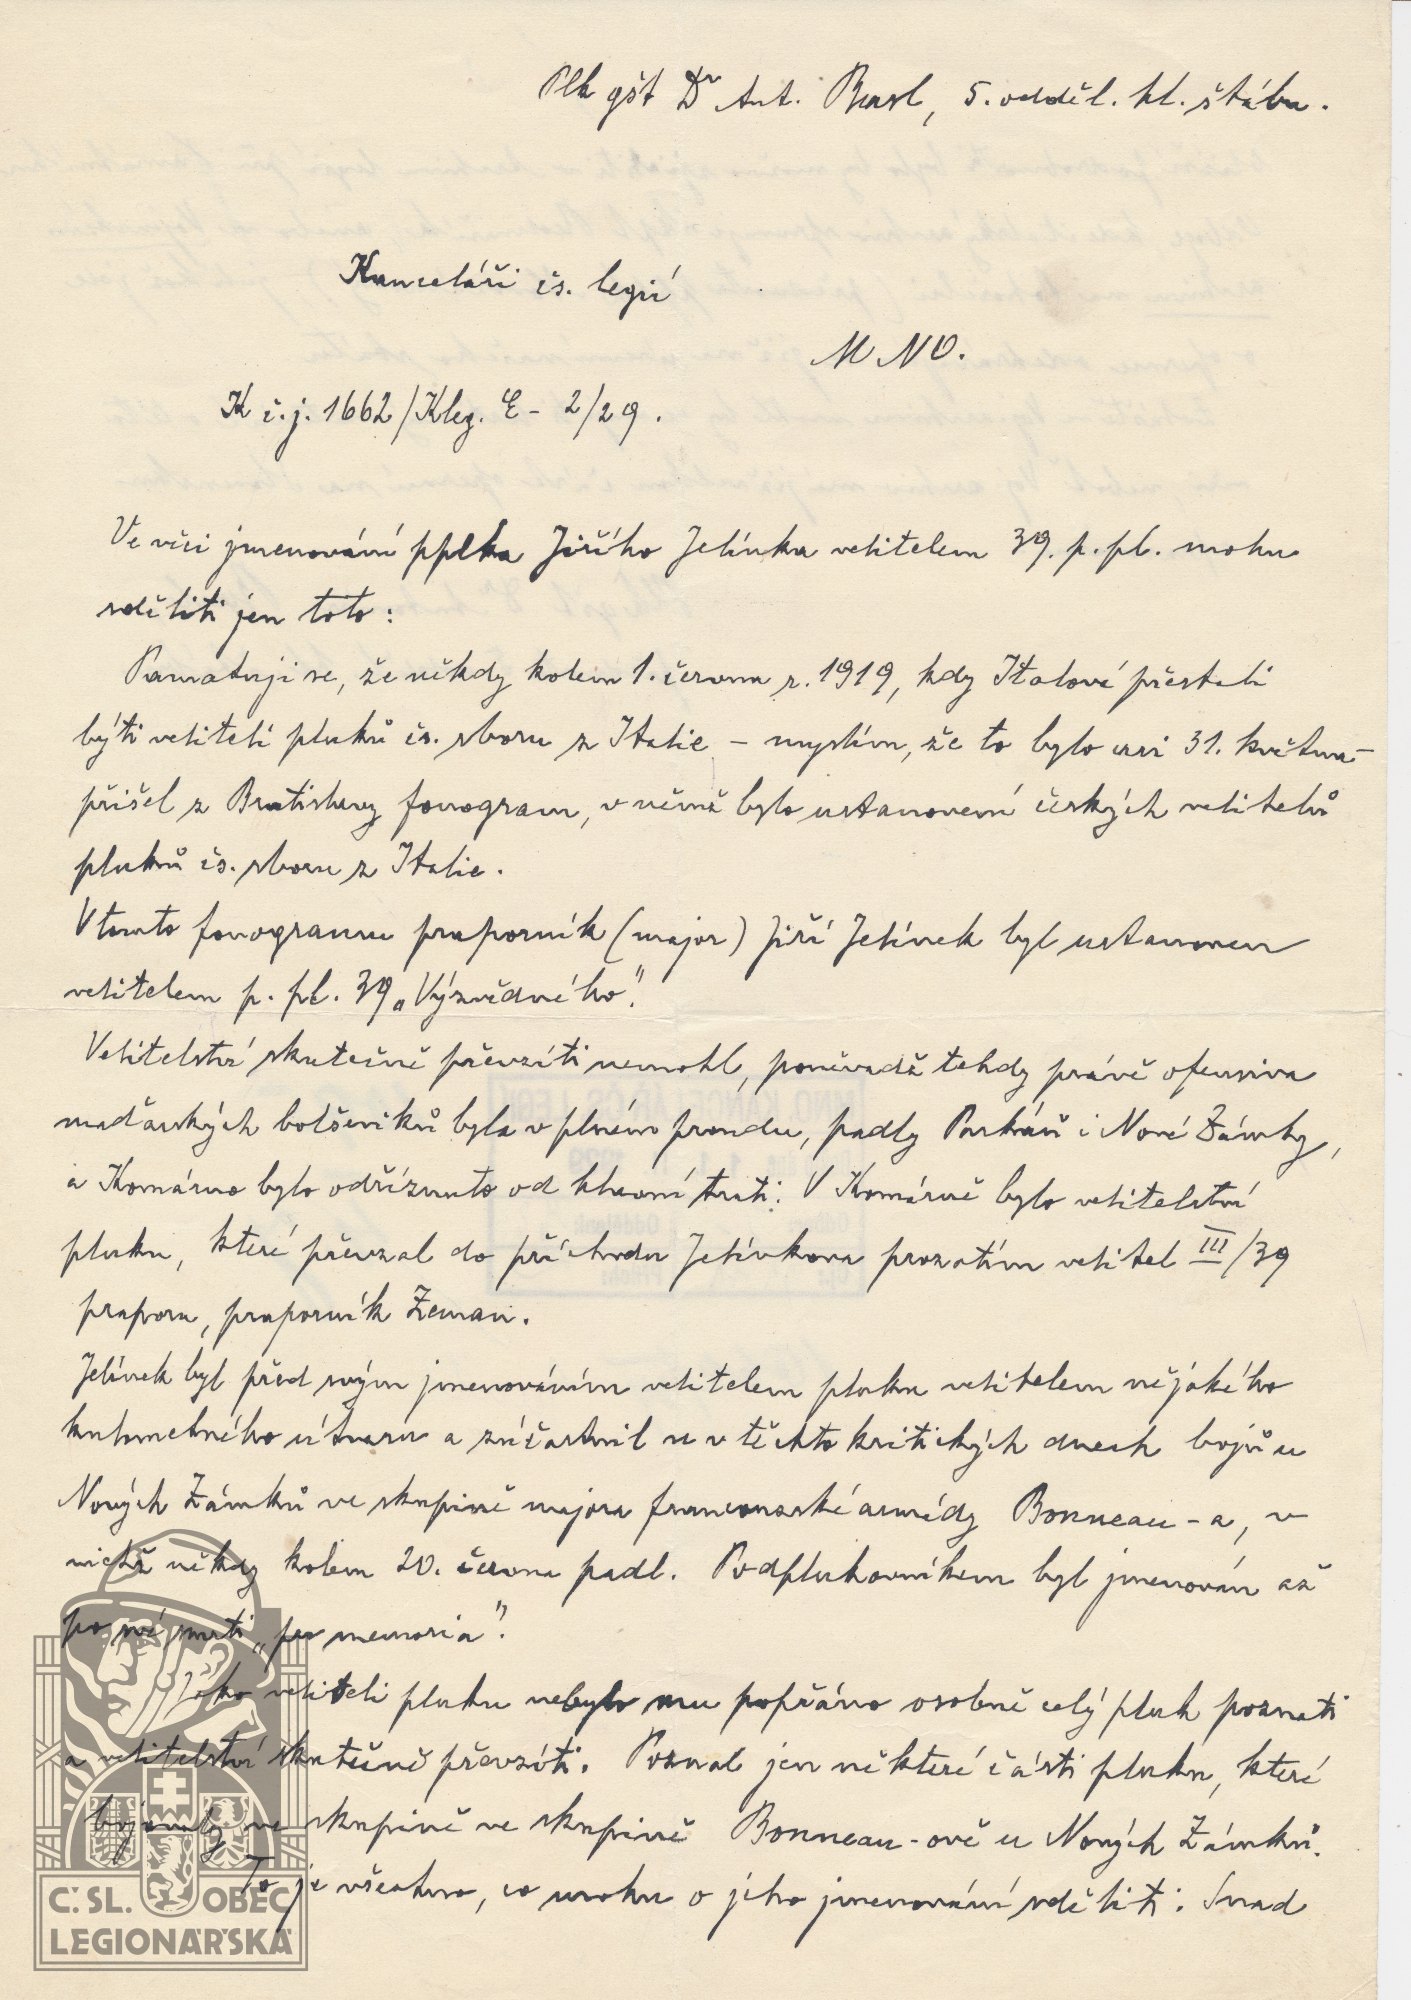 Plk gšt Dr Ant. Basl, 5. odděl. hl. štábu.
Kanceláři čs. legií
M N O.
K č.j. 1662/Kleg. E - 2/29.
Ve věci jmenování pplka Jiřího Jelínka velitelem 39. p. pl. mohu
sděliti jen toto:
Pamatuji se, že někdy kolem 1. června r. 1919, kdy Italové přestali
býti veliteli pluků čs. sboru z Italie – myslím, že to bylo asi 31. května –
přišel z Bratislavy fonogram, v němž bylo ustanovení českých velitelů
pluků čs. sboru z Italie.
V tomto fonogramu praporník (major) Jiří Jelínek byl ustanoven
velitelem p. pl. 39 „Výzvědného".
Velitelství skutečně převzíti nemohl, poněvadž tehdy právě ofensiva
maďarských bolševiků byla v plném proudu, padly Parkáň i Nové Zámky,
a Komárno bylo odříznuto od hlavní trati. V Komárně bylo velitelství
pluku, které převzal do příchodu Jelínkova prozatím velitel III/39
praporu, praporník Zeman.
Jelínek byl před svým jmenováním velitelem pluku velitelem nějakého
kulometného útvaru a zúčastnil se v těchto kritických dnech bojů u
Nových Zámků ve skupině majora francouzské armády Bonneau-a, v
nichž někdy kolem 20. června padl. Podplukovníkem byl jmenován až
po své smrti „pro memoria".
Jako veliteli pluku nebylo mu popřáno osobně celý pluk poznati
a velitelství skutečně převzíti. Poznal jen některé části pluku, které
bojovaly ve skupině ve skupině Bonneau-ově u Nových Zámků.
To je všechno, co mohu o jeho jmenování sděliti. Snad
Č.SL. OBEC
LEGIONÁŘSKÁ